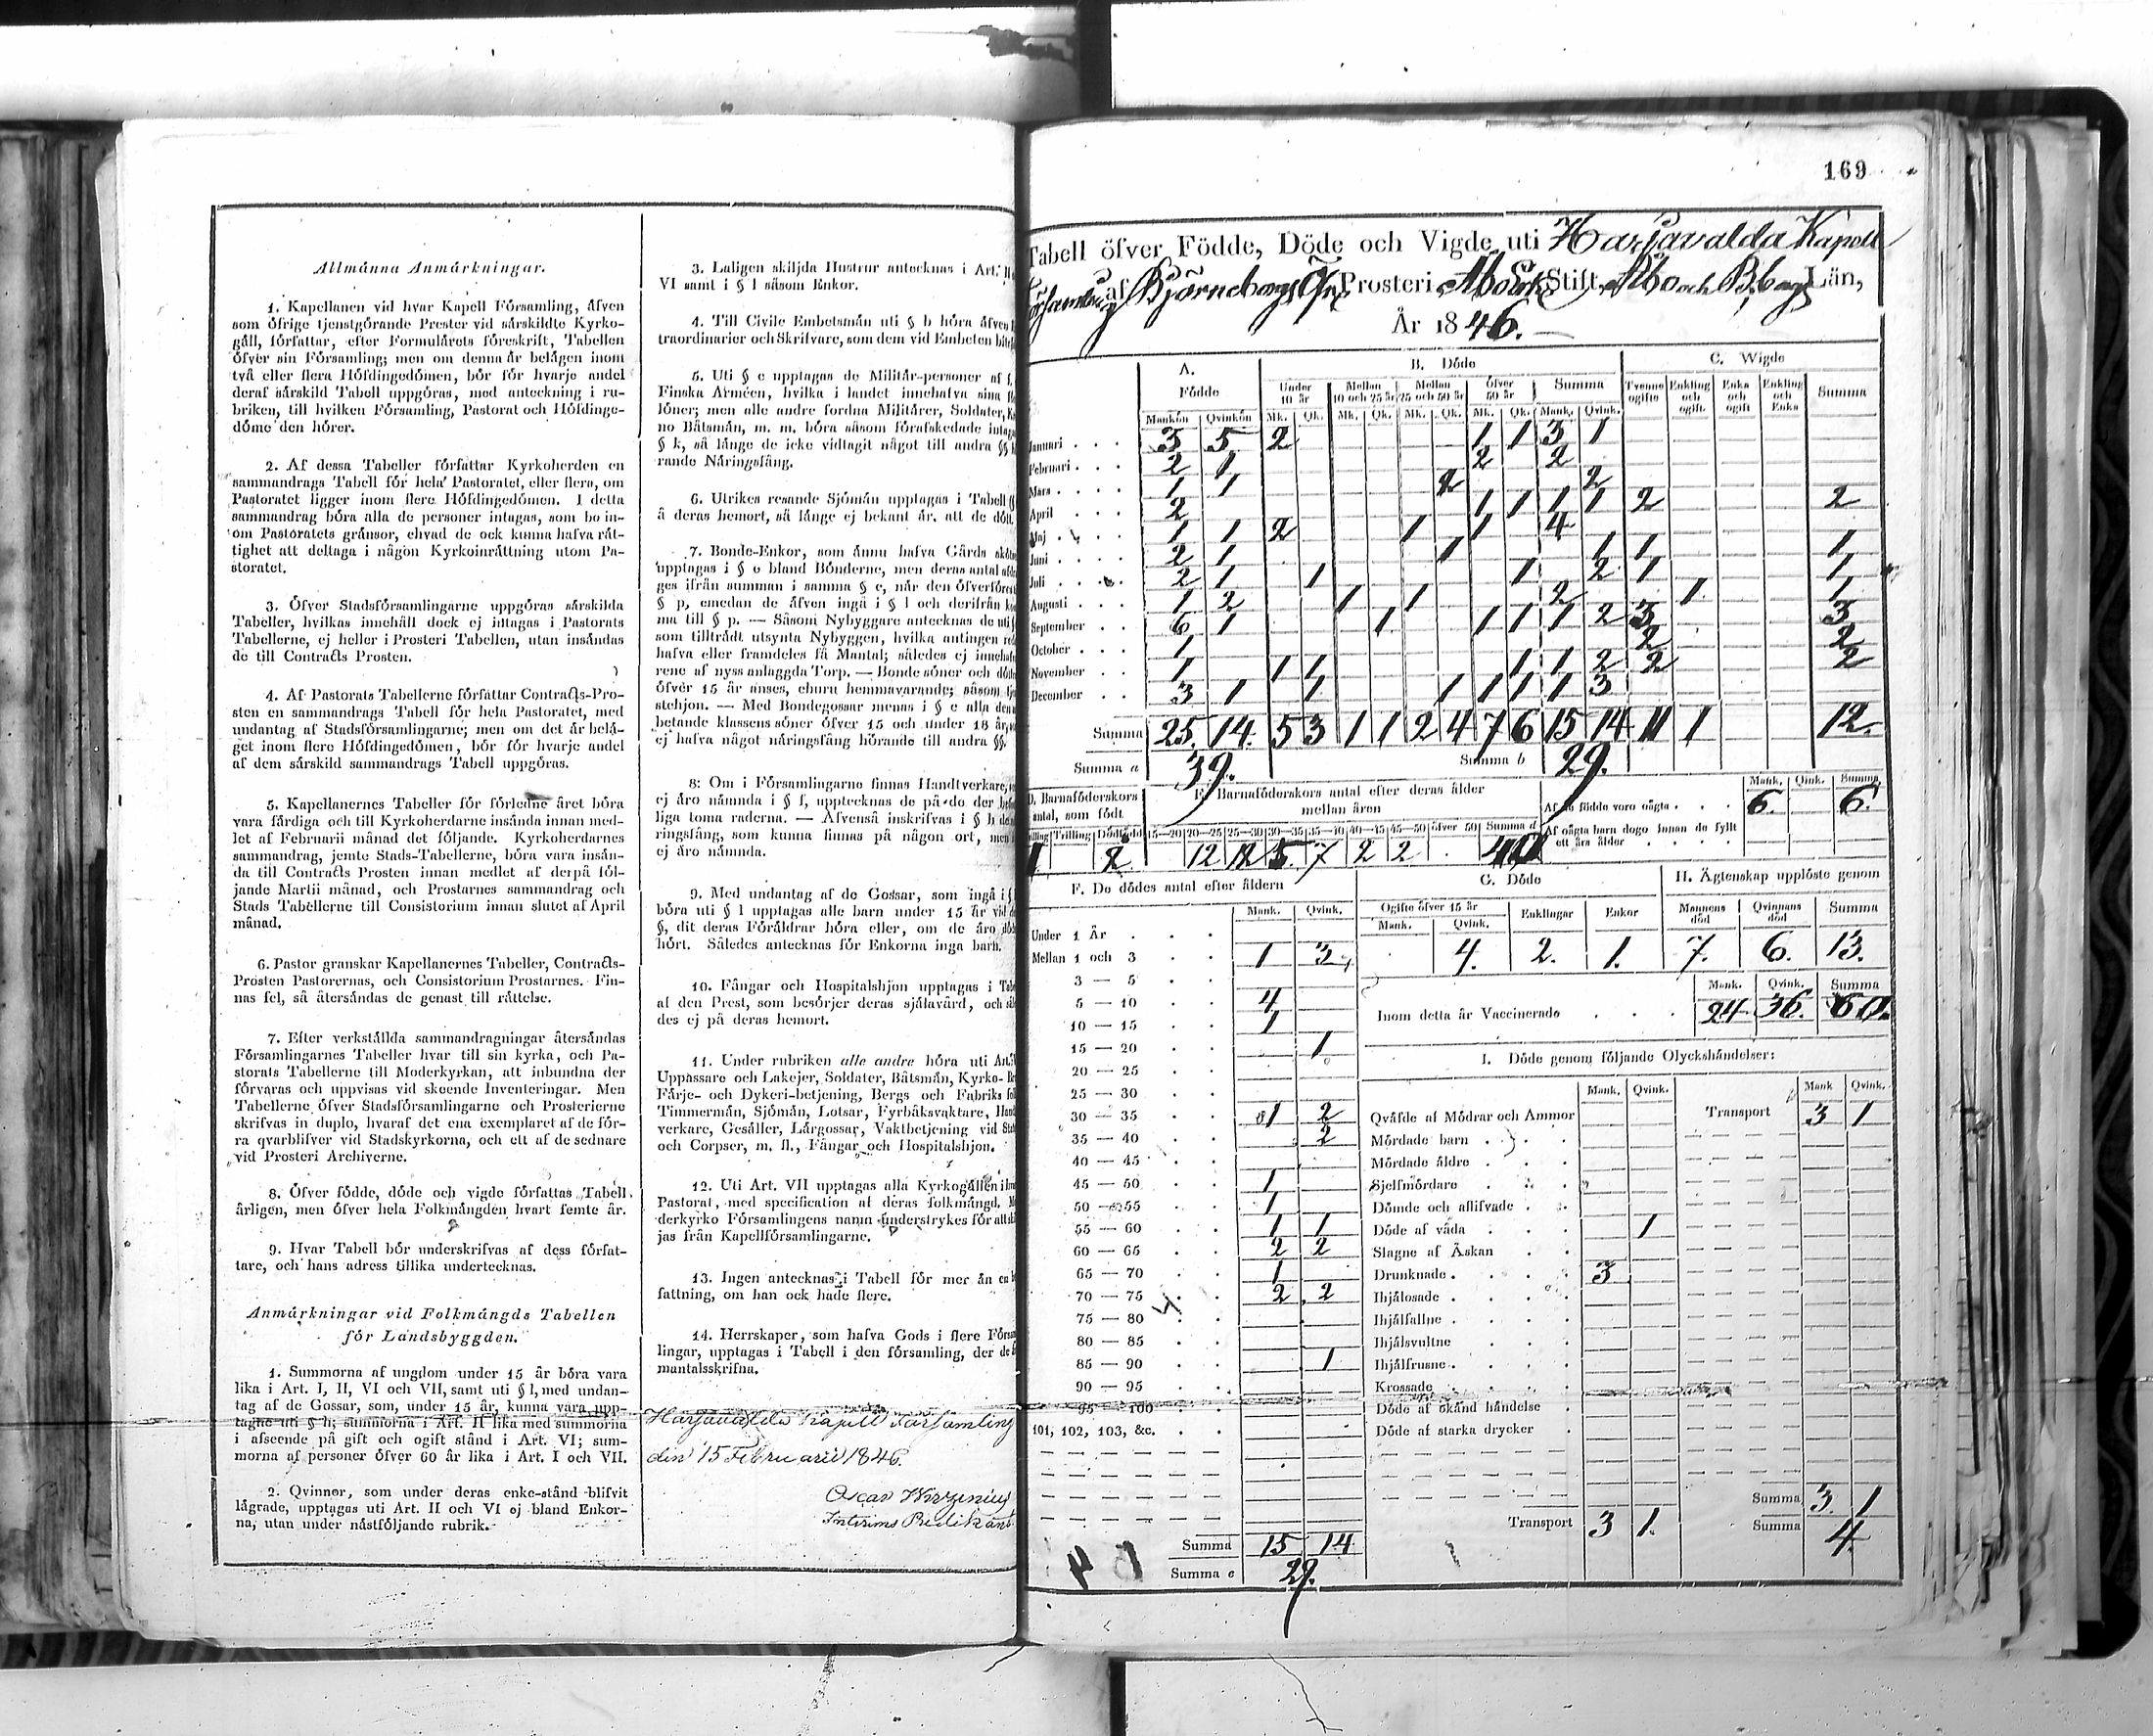 Allmänna Anmärkningar.
1. Kapellanen vid hvar Kapell Församling, äfven
som öfrige tjenstgörande Prester vid särskildte Kyrko-
gäll, författar, efter Formulärets föreskrift, Tabellen
öfver sin Församling; men om denna är belägen inom
två eller flera Höfdingedömen, bör för hvarje andel
deraf särskild Tabell uppgöras, med anteckning i ru-
briken, till hvilken Församling, Pastorat och Höfdinge-
döme den hörer.
2. Af dessa Tabeller författar Kyrkoherden en
sammandrags Tabell för hela Pastoratet, eller flera, om
Pastoratet ligger inom flere Höfdingedömen. I detta
sammandrag böra alla de personer intagas, som bo in-
om Pastoratets gränsor, ehvad de ock kunna hafva rät-
tighet att deltaga i någon Kyrkoinrättning utom Pa-
storatet.
3. Öfver Stadsförsamlingarne uppgöras särskilda
Tabeller, hvilkas innehåll dock ej intagas i Pastorats
Tabellerne, ej heller i Prosteri Tabellen, utan insändas
de till Contracts Prosten.
4. Af Pastorats Tabellerne författar Contracts-Pro-
sten en sammandrags Tabell för hela Pastoratet, med
undantag af Stadsförsamlingarne; men om det är belä-
get inom flere Höfdingedömen, bör för hvarje andel
af dem särskild sammandrags Tabell uppgöras.
5. Kapellanernes Tabeller för förledne året böra
vara färdiga och till Kyrkoherdarne insända innan med-
let af Februarii månad det följande. Kyrkoherdarnes
sammandrag, jemte Stads-Tabellerne, böra vara insän-
da till Contracts Prosten innan medlet af derpå föl-
jande Martii månad, och Prostarnes sammandrag och
Stads Tabellerne till Consistorium innan slutet af April
månad.
6. Pastor granskar Kapellanernes Tabeller, Contracts-
Prosten Pastorernas, och Consistorium Prostarnes. Fin-
nas fel, så återsändas de genast till rättelse.
7. Efter verkställda sammandragningar återsändas
Församlingarnes Tabeller hvar till sin kyrka, och Pa-
storats Tabellerne till Moderkyrkan, att inbundna der
förvaras och uppvisas vid skeende Inventeringar. Men
Tabellerne öfver Stadsförsamlingarne och Prosterierne
skrifvas in duplo, hvaraf det ena exemplaret af de för-
ra qvarblifver vid Stadskyrkorna, och ett af de sednare
vid Prosteri Archiverne.
8. Öfver födde, döde och vigde författas Tabell
årligen, men öfver hela Folkmängden hvart femte år.
9. Hvar Tabell bör underskrifvas af dess förfat-
tare, och hans adress tillika undertecknas.
Anmärkningar vid Folkmängds Tabellen
för Landsbyggden.
1. Summorna af ungdom under 15 år böra vara
lika i Art. I, II, VI och VII, samt uti § l, med undan-
tag af de Gossar, som, under 15 år, kunna vara upp-
tagne uti § h; summorna i Art. II lika med summorna
i afseende på gift och ogift stånd i Art. VI; sum-
morna af personer öfver 60 år lika i Art. I och VII.
2. Qvinnor, som under deras enke-stånd blifvit
lägrade, upptagas uti Art. II och VI ej bland Enkor-
na, utan under nästföljande rubrik.
3. Laligen skiljda Hustrur antecknas i Art.
VI samt i § l såsom Enkor.
4. Till Civile Embetsmän uti § b höra äfven
traordinarier och Skrifvare, som dem vid Embeten
5. Uti § c upptagas de Militär-personer af
Finska Arméen, hvilka i landet innehafva sina
löner; men alle andre fordna Militärer, Soldater,
no Båtsmän, m. m. böra såsom förafskedade
§ k, så länge de icke vidtagit något till andra §§
rande Näringsfång.
6. Utrikes resande Sjömän upptagas i Tabell
å deras hemort, så länge ej bekant är, att de
7. Bonde-Enkor, som ännu hafva Gårds
upptagas i § e bland Bönderne, men deras antal
ges ifrån summan i samma § e, när den öfverföres
§ p, emedan de äfven ingå i § l och derifrån
ma till § p. — Såsom Nybyggare antecknas de
som tillträdt utsynta Nybyggen, hvilka antingen
hafva eller framdeles få Mantal; således ej
rene af nyss anlaggda Torp. — Bonde söner och
öfver 15 år anses, ehuru hemmavarande; såsom
stehjon. — Med Bondegossar menas i § e alla
betande klassens söner öfver 15 och under 18 år,
ej hafva något näringsfång hörande till andra §§.
8. Om i Församlingarne finnas Handtverkare,
ej äro nämnda i § f, upptecknas de på de der
liga toma raderna. — Äfvenså inskrifvas i § h
ringsfång, som kunna finnas på någon ort, men
ej äro nämnda.
9. Med undantag af de Gossar, som ingå i
böra uti § l upptagas alle barn under 15 år vid
§, dit deras Föräldrar höra eller, om de äro
hört. Således antecknas för Enkorna inga barn.
10. Fångar och Hospitalshjon upptagas i
af den Prest, som besörjer deras själavård, och
des ej på deras hemort.
11. Under rubriken alle andre höra uti Art.
Uppassare och Lakejer, Soldater, Båtsmän, Kyrko-
Färje- och Dykeri-betjening, Bergs och Fabriks
Timmermän, Sjömän, Lotsar, Fyrbåksvaktare,
verkare, Gesäller, Lärgossar, Vaktbetjening vid
och Corpser, m. fl., Fångar och Hospitalshjon.
12. Uti Art. VII upptagas alla Kyrkogällen i
Pastorat, med specification af deras folkmängd.
derkyrko Församlingens namn understrykes för att
jas från Kapellförsamlingarne.
13. Ingen antecknas i Tabell för mer än en
fattning, om han ock hade flere.
14. Herrskaper, som hafva Gods i flere
lingar, upptagas i Tabell i den församling, der de
mantalsskrifna.
Harjavalda Kapell Församling
den 15 Februarii 1846.
Oscar Wirzenius
Interims Predikant
169
Tabell öfver Födde, Döde och Vigde uti Harjavalda Kapell
Församling af Björneborgs Prosteri, Åbo Stift, Åbo och Bborgs Län,
År 1846.
A. Födde B. Döde C. Wigde
Under 10 år Mellan 10 och 25 år Mellan 25 och 50 år Öfver 50 år Summa Tvenne ogifte Enkling och ogift. Enka och ogift Enkling och Enka Summa
Mankön Qvinkön Mk. Qk. Mk. Qk. Mk. Qk. Mk. Qk. Mank. Qvink.
Januari 3 5 2 1 1 3 1
Februari 2 1 2 2
Mars 1 1 2 2
April 2 1 1 1 1 2 2
Maj 1 1 2 1 1 4
Juni 2 1 1 1 1 1
Juli 2 1 1 1 2 1 1
Augusti 1 2 1 1 2 1 1
September 6 1 1 1 1 1 2 3 3
October 1 2 2
November 1 1 1 1 1 2 2 2
December 3 1 1 1 1 1 1 3
Summa 25. 14. 5 3 1 1 2 4 7 6 15 14 11 1 12.
Summa a 39. Summa b 29.
D. Barnaföderskors antal, som födt
E. Barnaföderskors antal efter deras ålder mellan åren
Af de födde voro oägta Mank. 6. Qink. Summa 6.
Af oägta barn dogo innan de fyllt ett års ålder
Tvilling Trilling Dödfödd 15—20 20—25 25—30 30—35 35—40 40—45 45—50 öfver 50 Summa d
1 2 12 12 5. 7 2 2 40
F. De dödes antal efter åldern
Mank. Qvink.
Under 1 År
Mellan 1 och 3 1 3
3 — 5
5 — 10 4
10 — 15 1
15 — 20 1
20 — 25
25 — 30
30 — 35 1 2
35 — 40 2
40 — 45
45 — 50 1
50 — 55 1
55 — 60 1 1
60 — 65 2 2
65 — 70 1
70 — 75 2 2
75 — 80
80 — 85
85 — 90 1
90 — 95
95 — 100
101, 102, 103, &c.
Summa 15 14
Summa c 29.
G. Döde
Ogifte öfver 15 år Enklingar Enkor
Mank. Qvink.
4. 2. 1.
H. Ägtenskap upplöste genom
Mannens död Qvinnans död Summa
7. 6. 13.
Mank. Qvink. Summa
Inom detta år Vaccinerade 24 36. 60.
I. Döde genom följande Olyckshändelser:
Mank. Qvink. Mank Qvink.
Qväfde af Mödrar och Ammor Transport 3 1
Mördade barn
Mördade äldre
Sjelfmördare
Dömde och aflifvade
Döde af våda 1
Slagne af Åskan
Drunknade 3
Ihjälosade
Ihjälfallne
Ihjälsvultne
Ihjälfrusne
Krossade
Döde af okänd händelse
Döde af starka drycker
Summa 3 1
Transport 3 1. Summa 4.